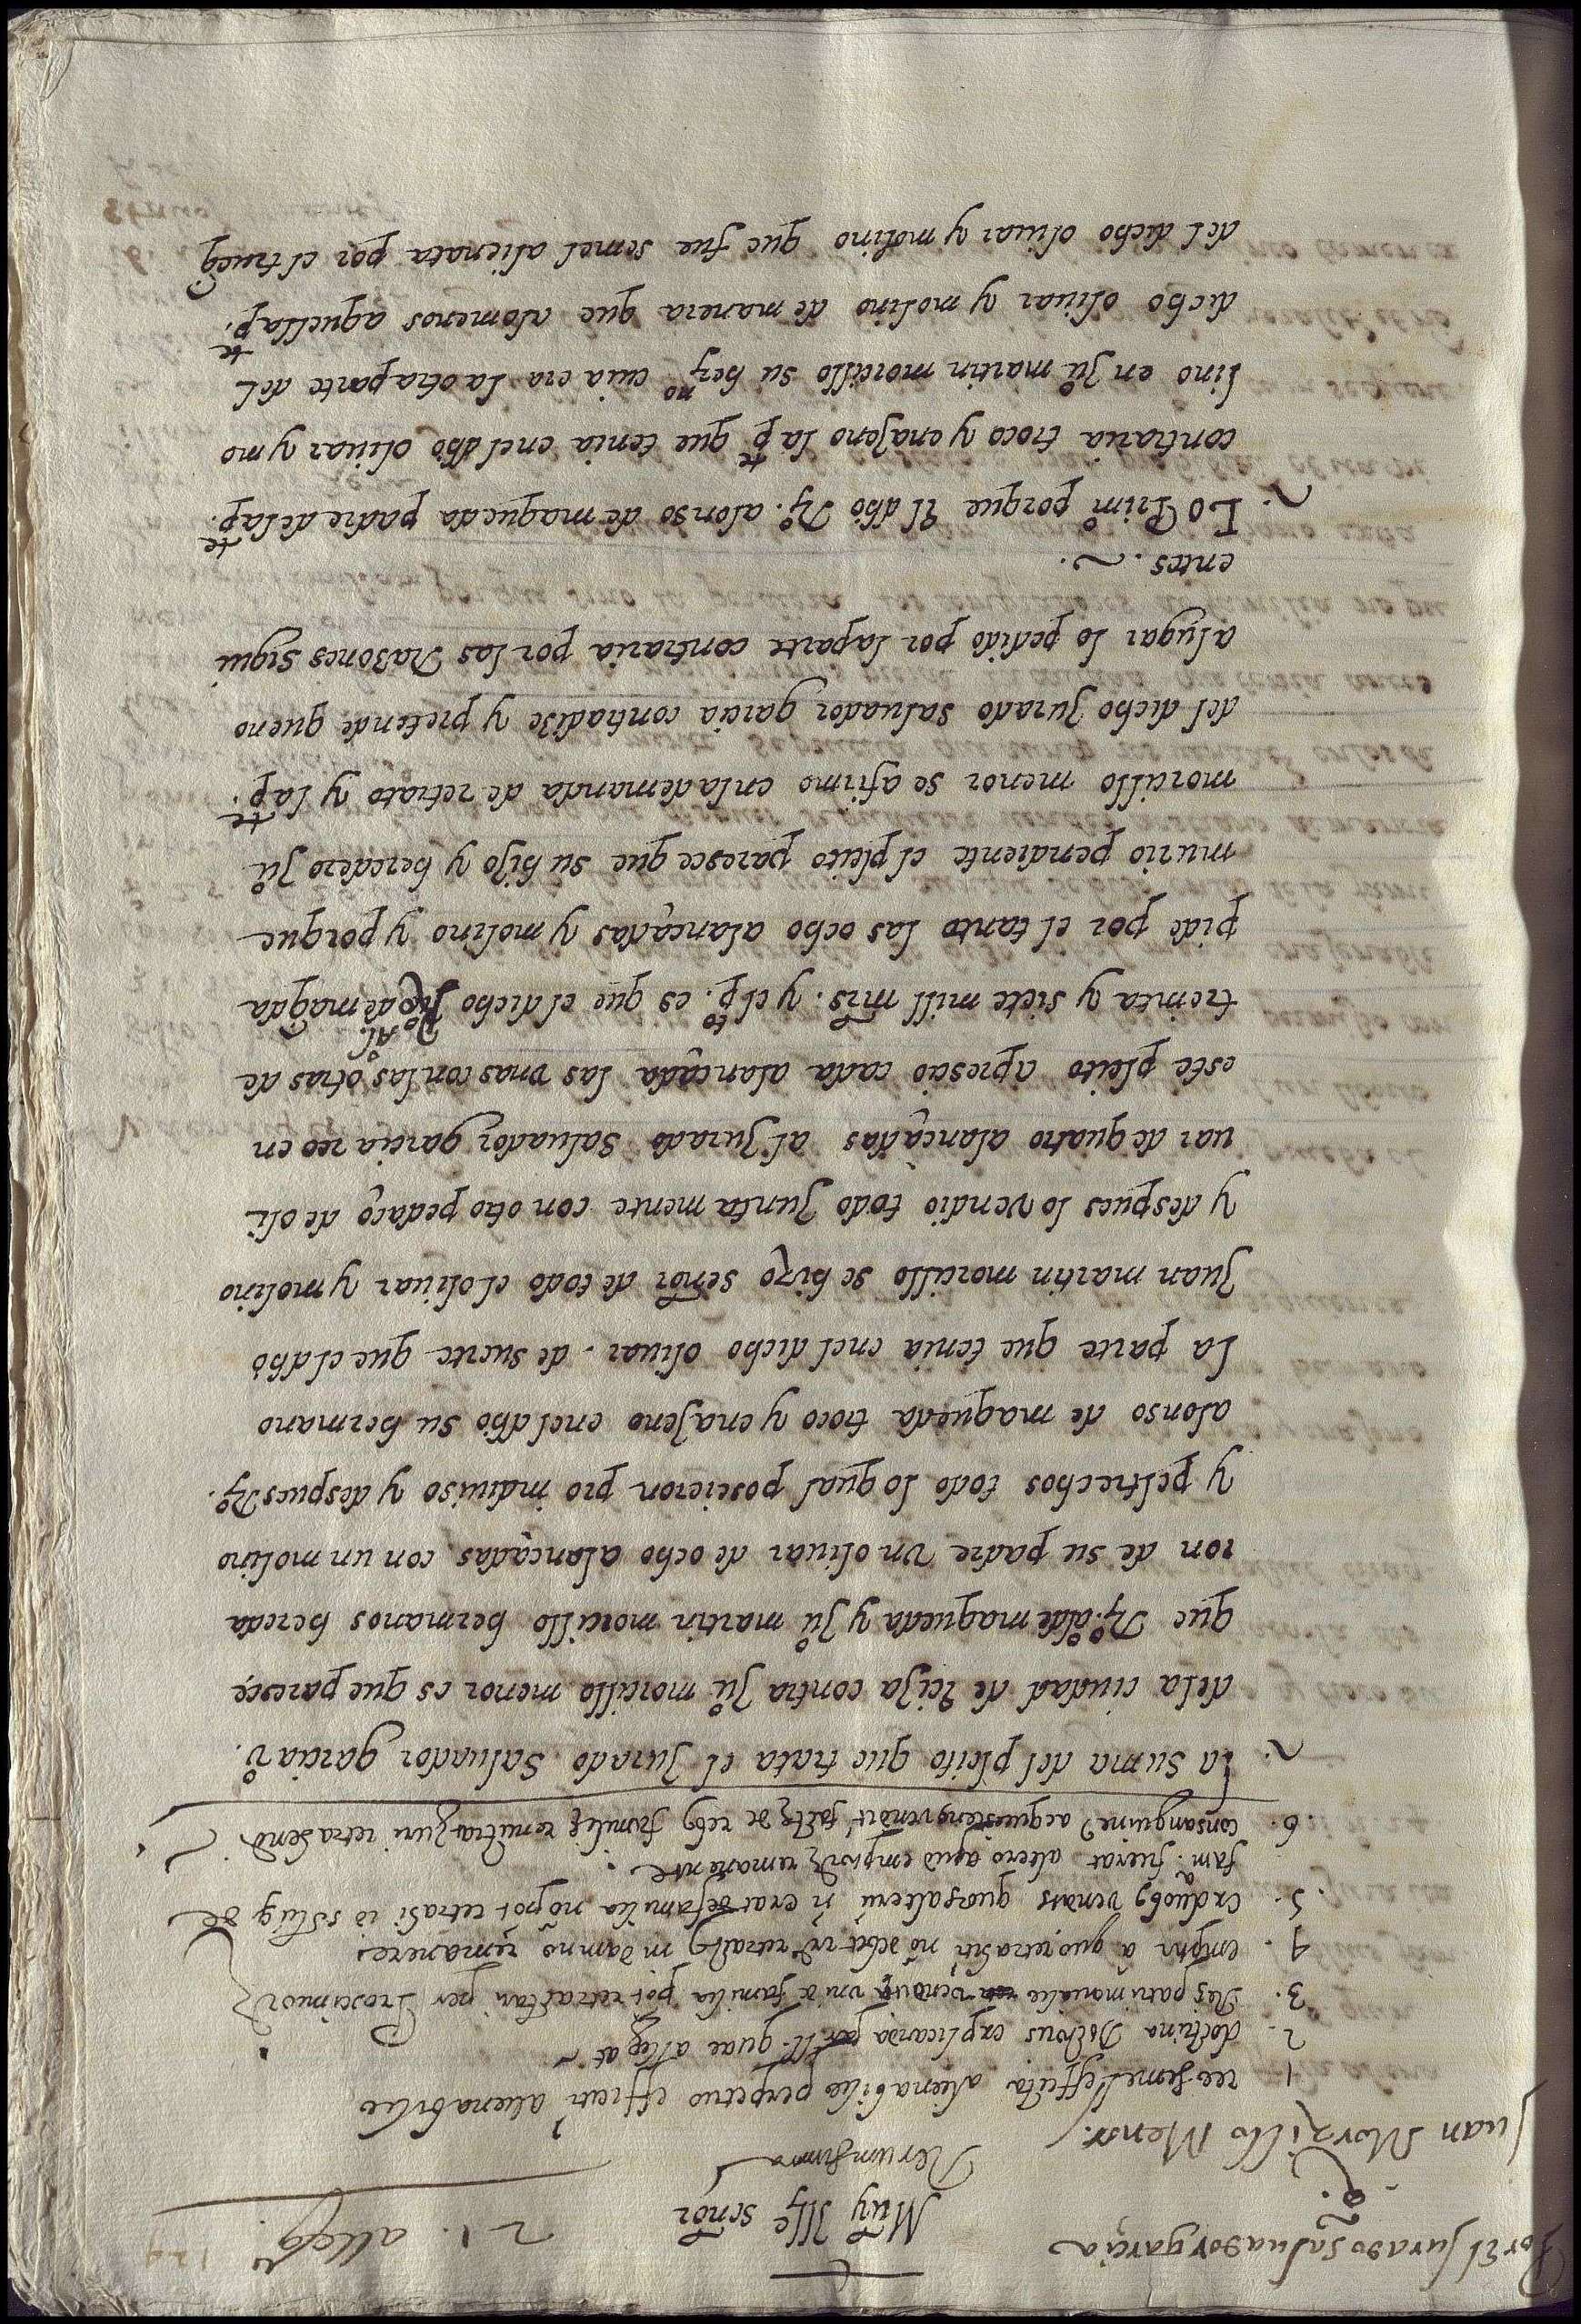 Por El Jurado saluador garcia
Juan Morzillo Menor.
21. alleg.
Muy Ille señor
Rerum summa
1 res semel effecta alienabilis perpetuo efficitr alienabilis
2. doctrina explicanda quae allegat
3. Res patrimonialis vendita uni de familia pot retractari per Proximiorē
4. emptr a quo retrahitr nō debet in damno remanere
5. ex duobȝ venditis quoȝ alterū erat de familia nō pot retrahi id
fam. fuerat altero apud emptorē remanente
6. consanguineȝ
~. La suma del pleito que trata el Jurado Saluador garcia vº.
dela ciudad de Ecija contra Juº morcillo menor es que paresce
que Rº. alº de maqueda y Juº martin morcillo hermanos hereda
ron de su padre vn oliuar de ocho alançadas con un molino
y peltrechos todo lo qual poseieron pro indiuiso y despues Rº.
alonso de maqueda troco y enajeno enel dho su hermano
La parte que tenia enel dicho oliuar. de suerte que el dho
Juan martin morcillo se hizo señor de todo el oliuar y molino
y despues lo vendio todo Junta mente con otro pedaço de oli
uar de quatro alançadas al Jurado Saluador garcia reo en
este pleito apreçio cada alançada las vnas con las otras de
treinta y siete mill mrs. y el pto. es que el dicho Rº Al. de maqda
pide por el tanto las ocho alançadas y molino y porque
murio pendiente el pleito paresce que su hijo y heredero Juº
morcillo menor se afirmo enla demanda de retrato y la pte.
del dicho Jurado saluador garcia contradize y pretende que no
a lugar lo pedido por la parte contraria por las Razones sigui
entes. ~.
~. Lo Primº porque El dho Rº. alonso de maqueda padre dela pte.
contraria troco y enajeno la pte que tenia enel dho oliuar y mo
lino en Juº martin morcillo su herno cuia era la otra parte del
dicho oliuar y molino de manera que alomenos aquella pte.
del dicho oliuar y molino que fue semel alienata por el trueq